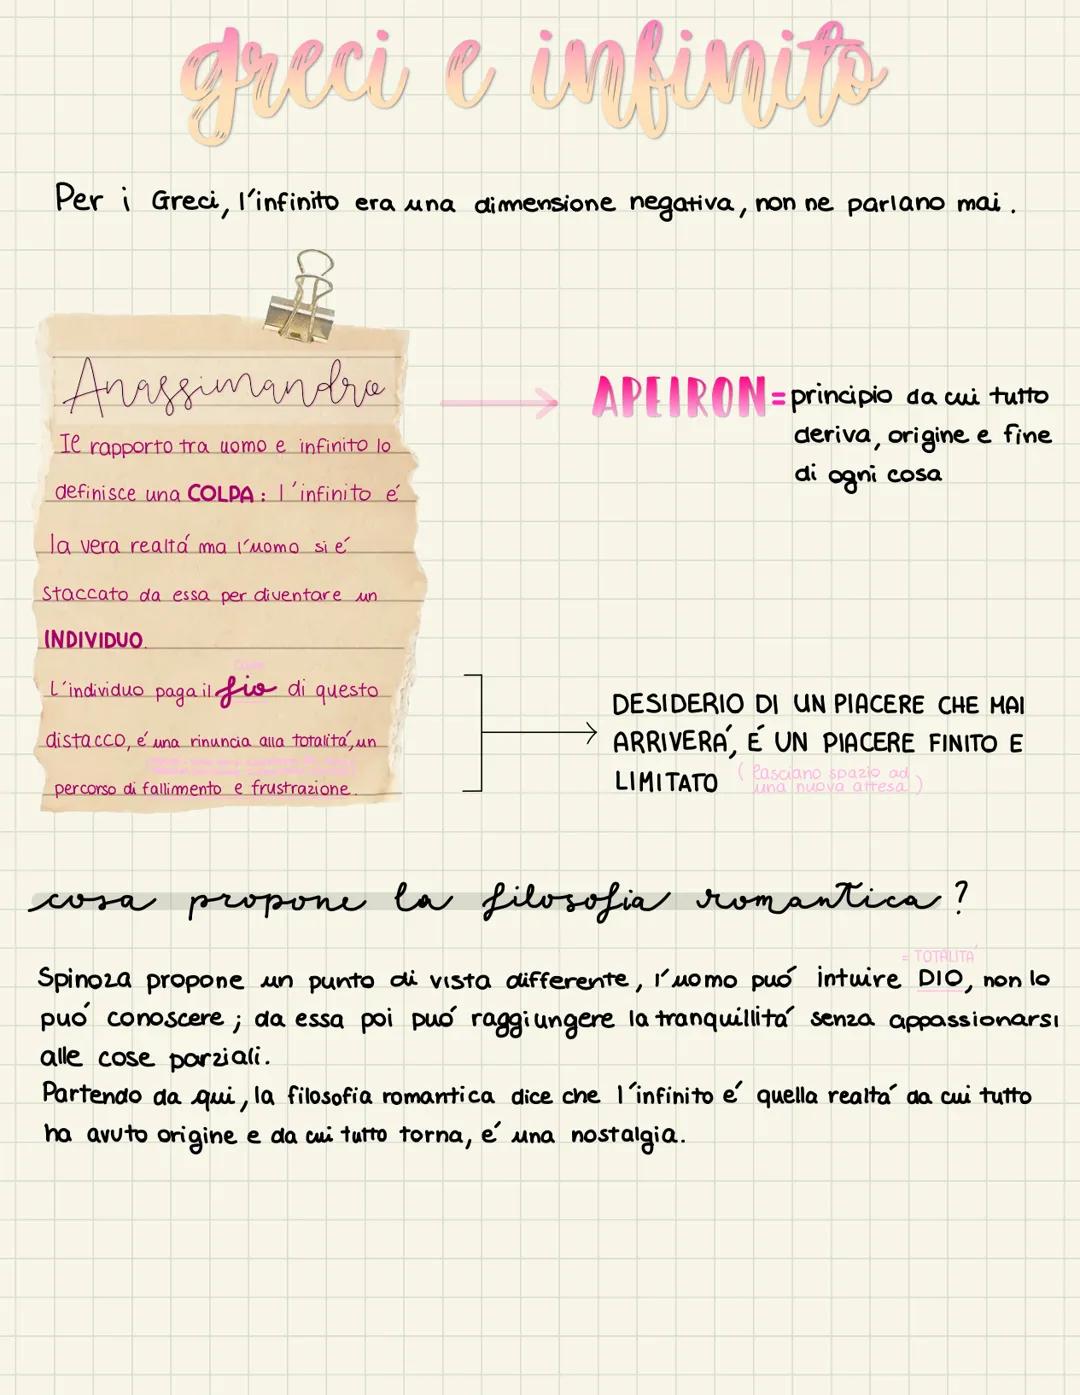 greci e infinito
Per i Greci, l'infinito era una dimensione negativa, non ne parlano mai.
Anassimandro
Il rapporto tra uomo e infinito lo
definisce una COLPA: l'infinito é
la vera realtá ma l'uomo si é
staccato da essa per diventare un
INDIVIDUO.
L'individuo paga il fio di questo
distacco, é una rinuncia alla totalitá, un
percorso di fallimento e frustrazione.
APEIRON = principio da cui tutto
deriva, origine e fine
di ogni cosa
DESIDERIO DI UN PIACERE CHE MAI
ARRIVERÁ, É UN PIACERE FINITO E
LIMITATO (lasciano spazio ad
una nuova attesa)
cosa propone la filosofia romantica?
= TOTALITÁ
Spinoza propone un punto di vista differente, l'uomo puó intuire DIO, non lo
puó conoscere; da essa poi puó raggiungere la tranquillitá senza appassionarsi
alle cose parziali.
Partendo da qui, la filosofia romantica dice che l'infinito é quella realtá da cui tutto
ha avuto origine e da cui tutto torna, é una nostalgia.